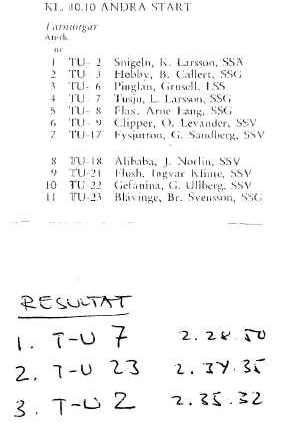 KL. 10.10 ANDRA START
Tärningar
Återk.
nr
1 TU- 2 Snigeln, K. Larsson, SSA
2 TU- 3 Hobby, B. Callert, SSG
3 TU- 6 Pinglan, Grusell, LSS
4 TU- 7 Tusju, L. Larsson, SSG
5 TU- 8 Flax, Arne Lang, SSG
6 TU- 9 Clipper, O. Levander, SSV
7 TU-17 Fysjutton, G. Sandberg, SSV
8 TU-18 Alibaba, J. Norlin, SSV
9 TU-21 Flush, Ingvar Klinte, SSV
10 TU-22 Gefanina, G. Ullberg, SSV
11 TU-23 Blåvinge, Br. Svensson, SSG
RESULTAT
1. T-U 7 2.28.50
2. T-U 23 2.34.35
3. T-U 2 2.35.32